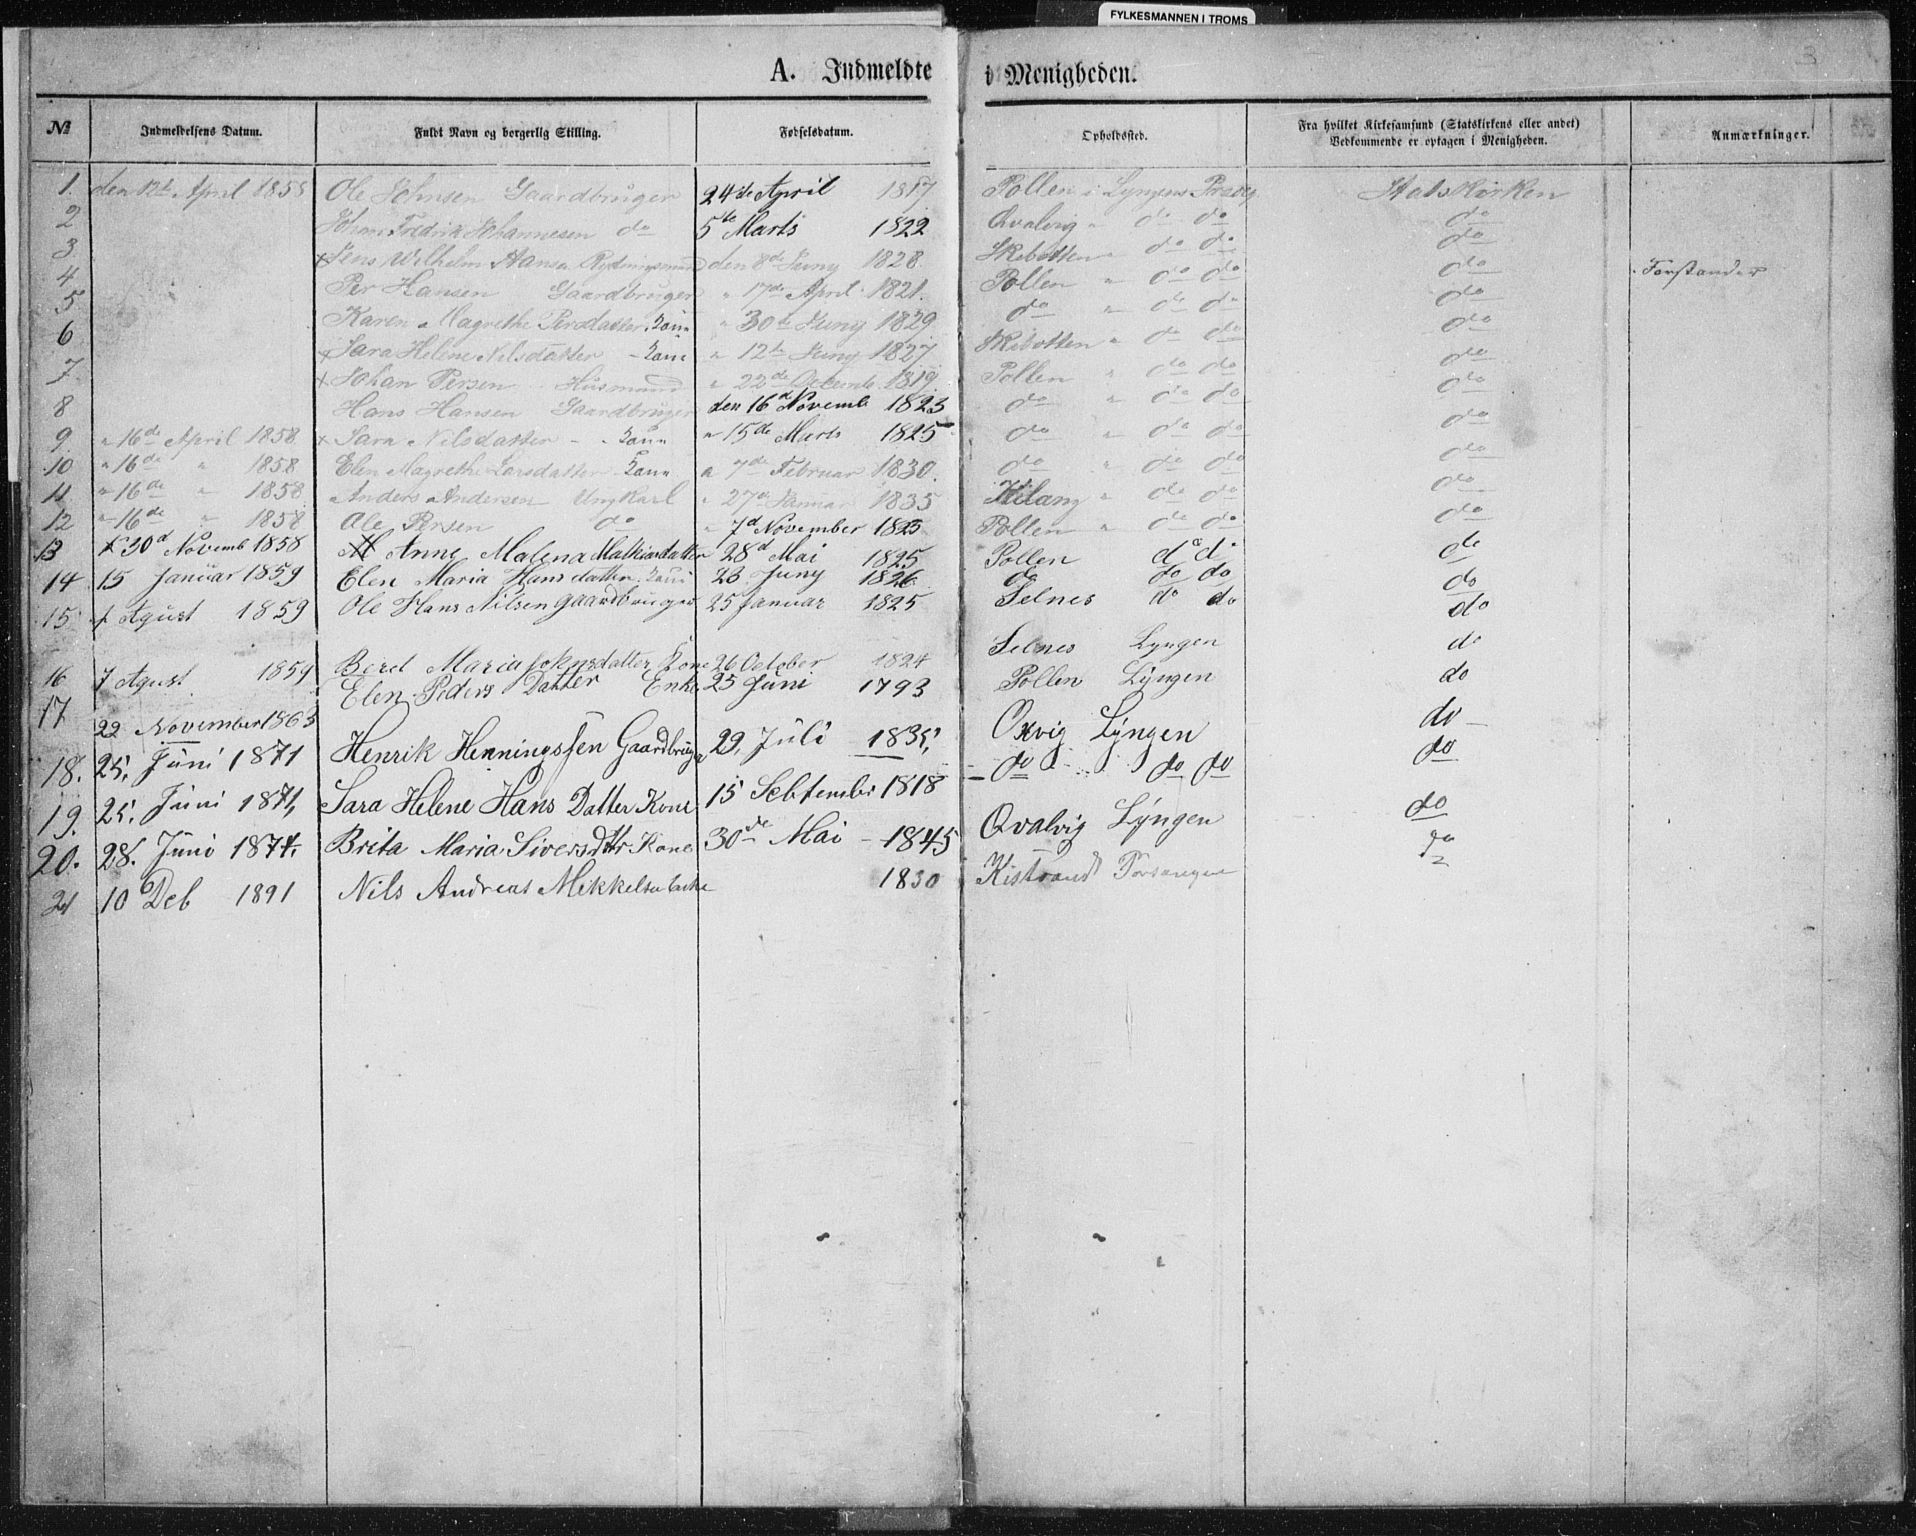 FYLKESMANNEN I TROMS
3
A. Indmeldte i Menigheden.
№ Indmeldelsens Datum. Fuldt Navn og borgerlig Stilling. Fødselsdatum. Opholdssted. Fra hvilket Kirkesamfund (Statskirkens eller andet) Vedkommende er optagen i Menigheden. Anmærkninger.
1. den 12te April 1858 Ole Johnsen Gaardbruger 24de April 1817 Pollen i Lyngens Præstg Statskirken
2 Johan Fredrik Johannesen do 5te Marts 1822 Qvalvig " do do do
3 x Jens Wilhelm Hansen Rydningsmand den 8de Juny 1828. Skibotten " do do do
4 Per Hansen Gaardbruger " 17de April 1821. Pollen " do do do Forstander
5 Karen Magrethe Persdatter Kone " 30te Juny 1829 do " do do do
6 x Sara Helene Nilsdatter - Kone " 12te Juny 1827 Skibotten " do do do
7 x Johan Persen Husmand " 22de Decemb. 1819. Pollen " do do do
8 Hans Hansen Gaardbruger den 16de Novemb 1823 do " do do do
9 " 16de April 1858. x Sara Nilsdatter - Kone " 15de Marts 1825 do " do do do
10 " 16de " 1858 Elen Magrethe Larsdatter Kone " 7de Februar 1830. do " do do do
11 " 16de " 1858 Anders Andersen Ungkarl " 27de Januar 1835 Kilang " do do do
12 " 16de " 1858 Ole Persen do " 7d November 1823 Pollen " do do do
13 30d Novemb 1858 Anne Malena Mathiasdatter 28d Mai 1825 Pollen do do do
14 15 Januar 1859 Elen Maria Hansdatter Kone 23 Juny 1826 do do do do
15 1 Agust 1859 Ole Hans Nilsen gaardbruger 25 Januar 1825 Selnes do do do
16 7 Agust 1859 Berel Maria Johnsdatter Kone 26 October 1824 Selnes Lyngen do
17 22 November 1863 Elen Peders Datter Enke 25 Juni 1793 Pollen Lyngen do
18. 25. Juni 1871 Henrik Henningssen Gaardbruger 29. Juli 1835, Oxvig Lyngen do
19. 25. Juni 1871, Sara Helene Hans Datter Kone 15 Sebtember 1818 do do do do
20. 28. Juni 1874. Brita Maria Siversdtr Kone 30de Mai - 1845 Qvalvig Lyngen do
21 10 Deb 1891 Nils Andreas Mikkelsen 1830 Kistrand Porsangen do